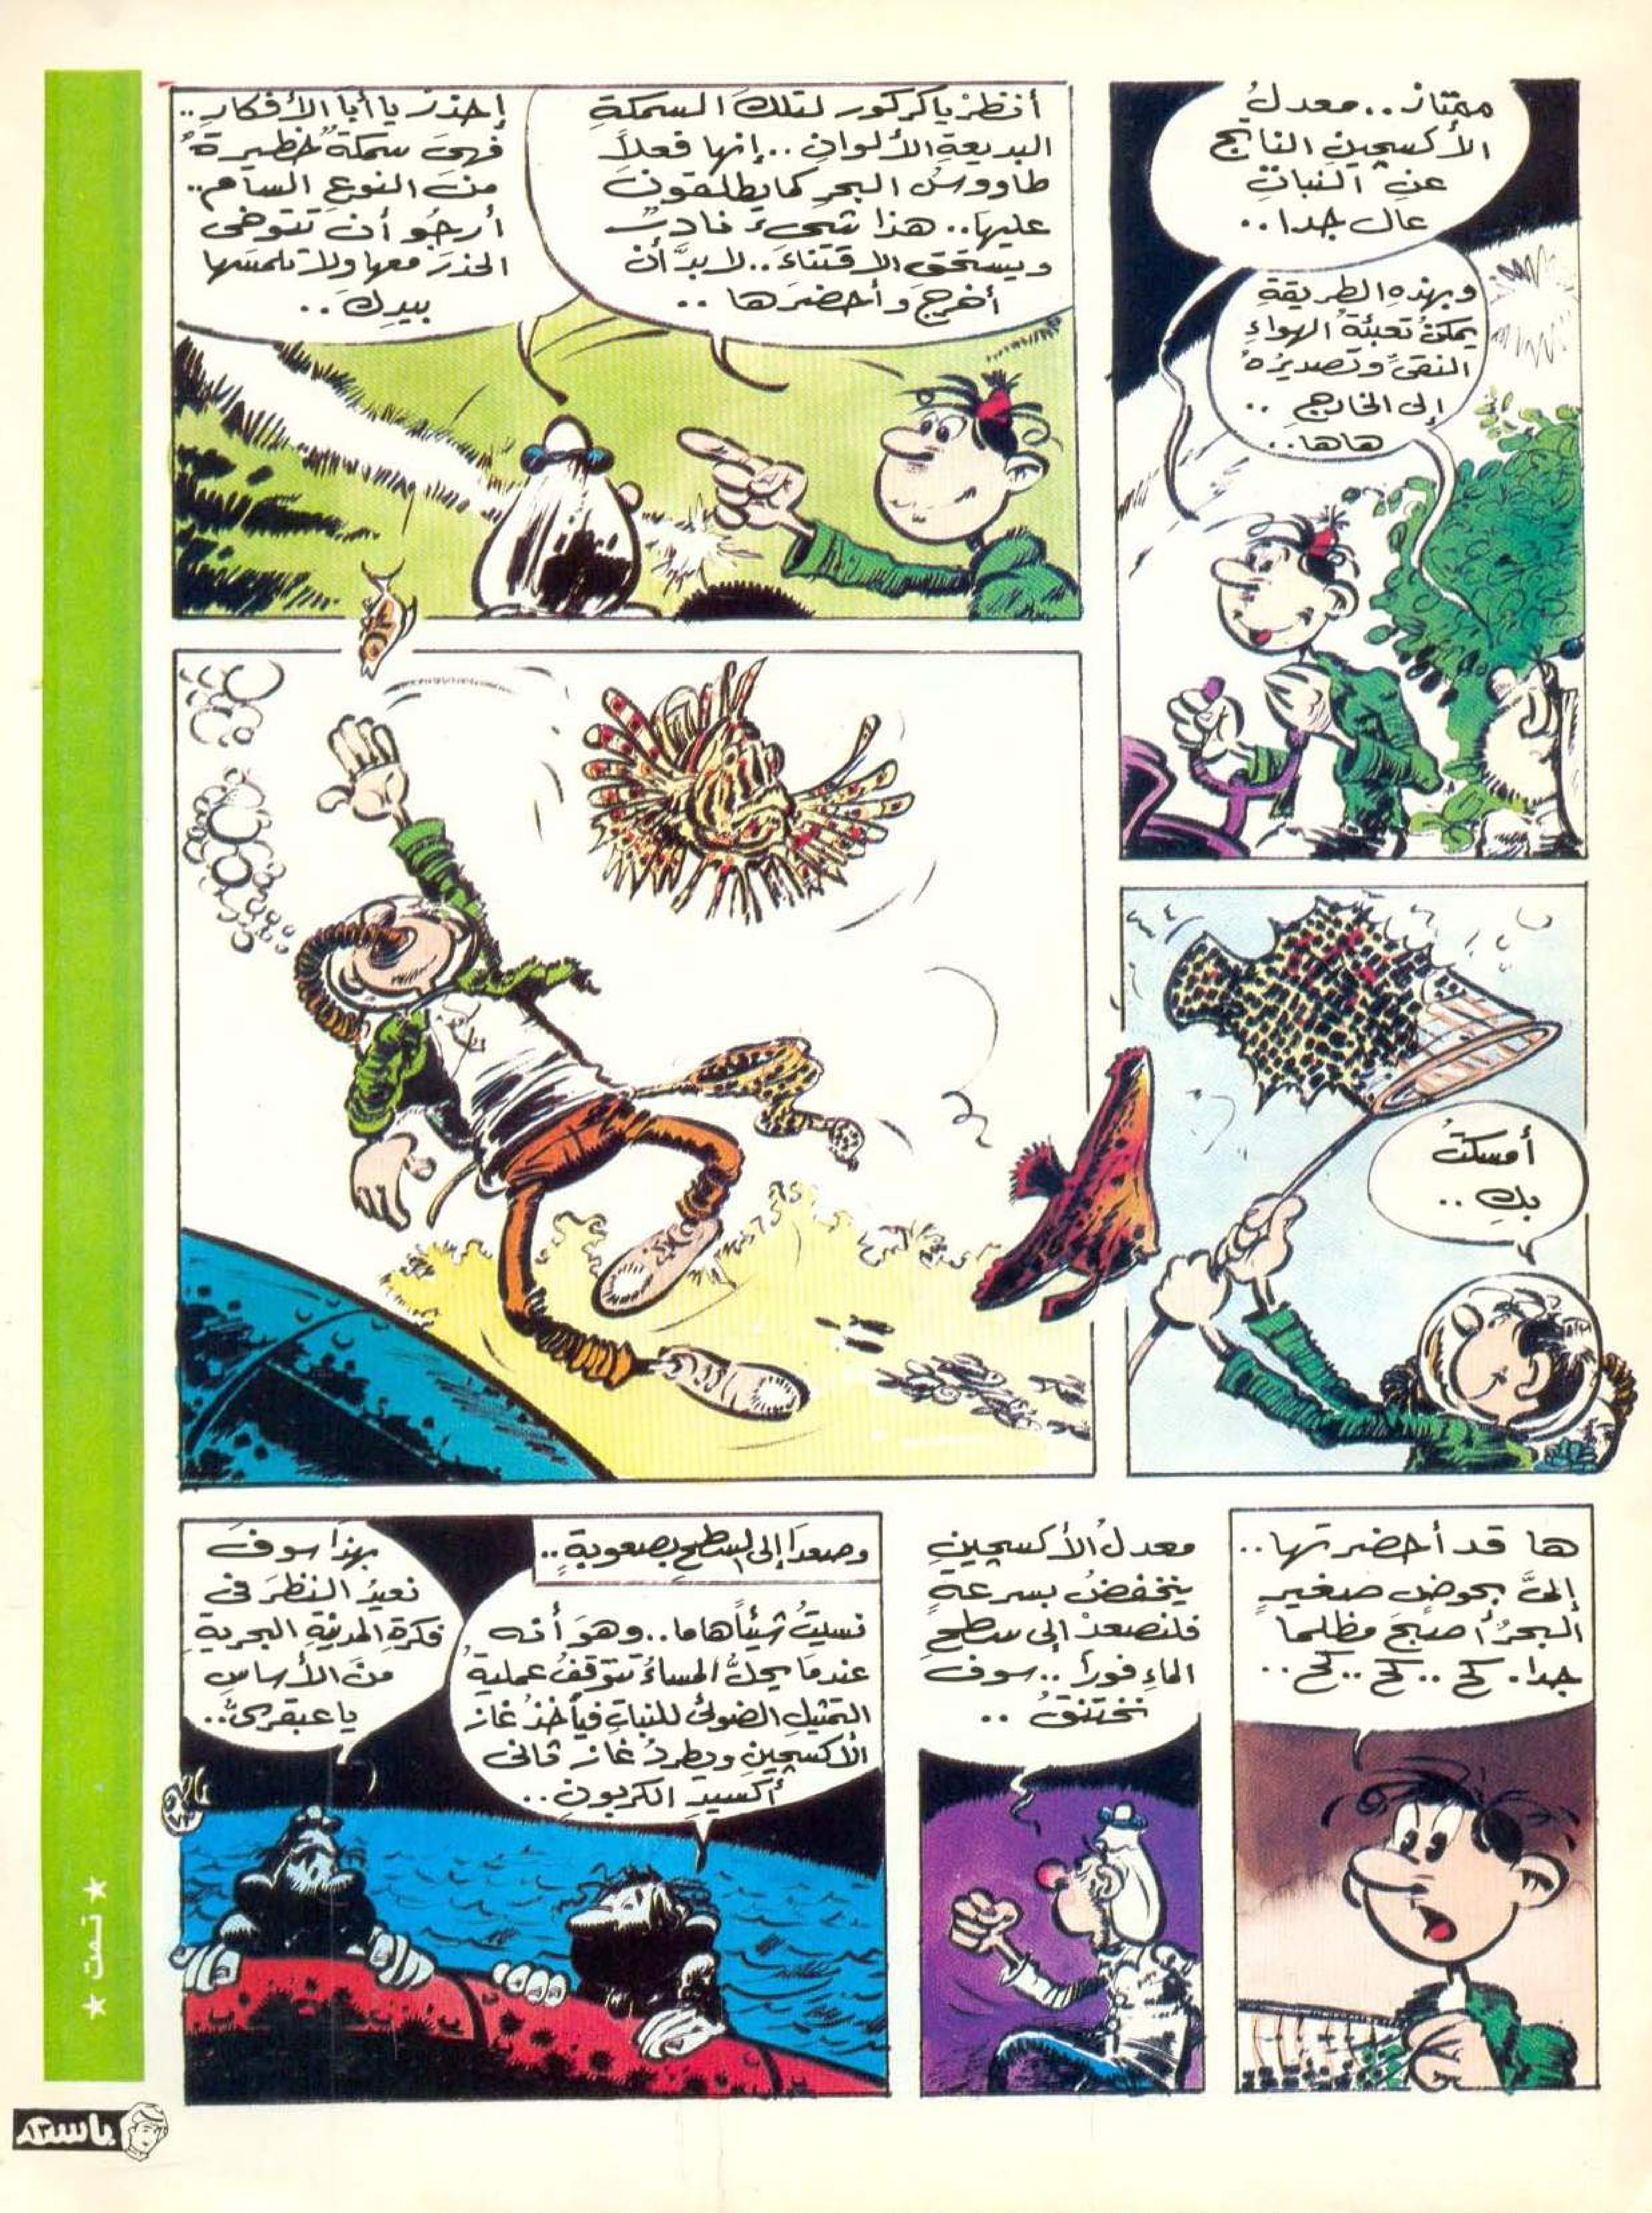 ممتاز.. معدلُ
الأكسجينِ الناتجِ
عنِ النباتِ
عالٍ جدا..
وبهذهِ الطريقةِ
يمكنُ تعبئةُ الهواءِ
النقىِّ وتصديرُهُ
إلى الخارجِ ..
هاها..
أنظرْ ياكركور لتلكَ السمكةِ
البديعةِ الألوانِ .. إنها فعلاً
طاووسُ البحرِ كما يطلقونَ
عليها.. هذا شيءٌ نادرٌ
ويستحقُ الاقتناءَ.. لابدَّ أن
أخرجَ وأحضرَها ..
إحذرْ يا أبا الأفكارِ..
فهىَ سمكةٌ خطيرةٌ
منَ النوعِ السامِ..
أرجُو أن تتوخى
الحذرَ معها ولا تلمسَها
بيدِكَ ..
أمسكتُ
بكِ ..
ها قد أحضرتها..
إلىَّ بحوضٍ صغيرٍ
البحرُ أصبحَ مظلماً
جدا. كح .. كح .. كح ..
معدلُ الأكسجينِ
ينخفضُ بسرعةٍ
فلنصعدْ إلى سطحِ
الماءِ فوراً .. سوفَ
نختنقُ ..
وصعدَا إلى السطحِ بصعوبةٍ..
نسيتُ شيئاً هاما.. وهوَ أنه
عندمَا يحلُّ المساءُ تتوقفُ عمليةُ
التمثيلِ الضوئىِّ للنباتِ فيأخذُ غازَ
الأكسجينِ ويطردُ غازَ ثانى
أكسيدِ الكربونِ..
بهذَا سوفَ
نعيدُ النظرَ فى
فكرةِ المدنيةِ البحريةِ
منَ الأساسِ
ياعبقرىُّ..
★ تمت ★
باسم